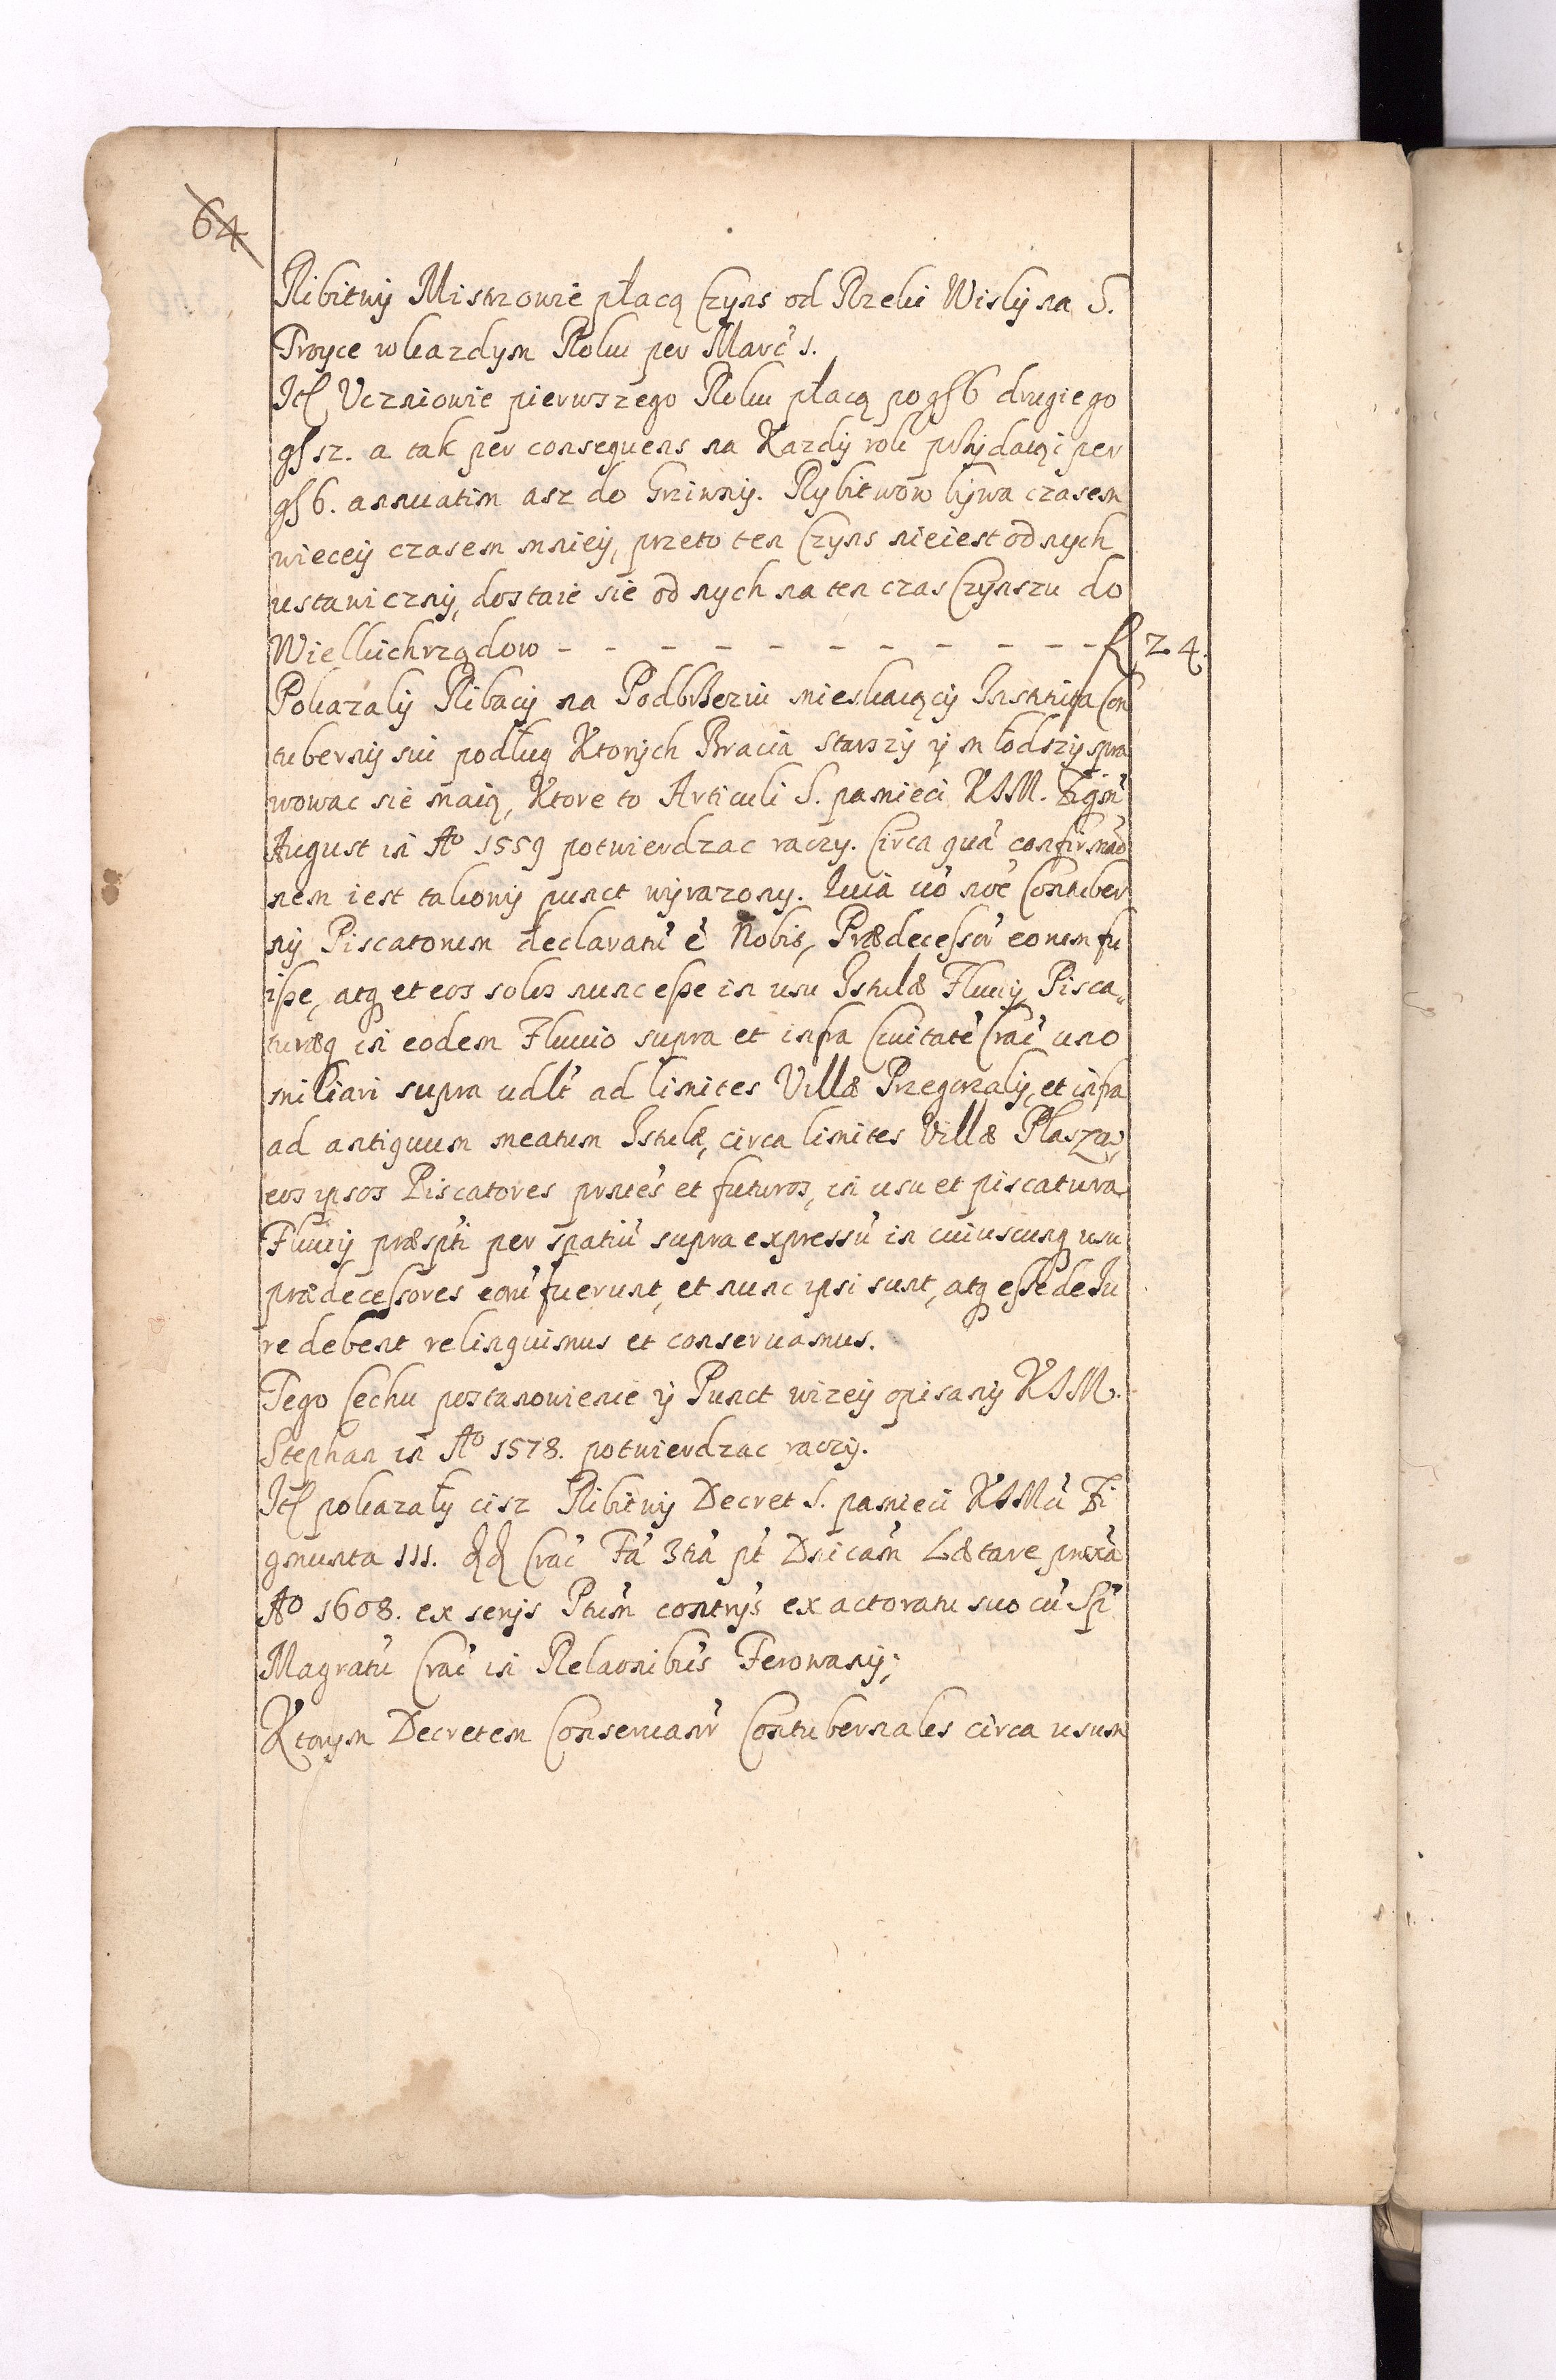 64
Ribitwÿ Mistrzowie płacą Czÿns od Rzeki Wislÿ na S.
Troyce w kazdÿm Roku per Marc̃ 1.
Itē Uczniowie pierwszego Roku płacą po gſ 6 drugiego
gſ 12. a tak per consequens na Kazdÿ rok przÿdaiąc per
gſ 6. annuatim asz do Griwnÿ. Rybitwow bÿwa czasem
wieceÿ czasem mnieÿ, przeto ten Czÿns nieiest od nych
ustawicznÿ, dostaie sie od nych na ten czas Czÿnszu do
Wielkichrządow - - - - - - - - - - - fl 24.
Pokazalÿ Ribacÿ na Podbrzeziu mieskaiącÿ Instituta Con
tubernÿ sui podług Ktorÿch Bracia Starszÿ ÿ młodszÿ spra
wowac sie maią, Ktore to Articuli S. pamieci KJM. Zigm̃
August in Aº 1559 potwierdzac raczÿ. Circa quã confirmão
nem iest takowÿ punct wÿrazonÿ. Quia uõ nõe Contuber
nÿ Piscatorum declaratũ ẽ Nobis, Prædecessoř eorum fu
isse, atq et eos solos nunc esse in usu Istulæ Fluuÿ, Pisca„
turæq in eodem Fluuio supra et infra Ciuitatẽ Crac̃ uno
miliari supra udlt̃ ad limites Villæ Przegorzalÿ, et infra
ad antiquum meatum Istulæ, circa limites Villæ Plaszow,
eos ipsos Piscatores pñtes et futuros, in usu et piscatura
Fluuÿ præsp̃ti per spatiũ supra expressũ in cuiuscunq usu
prædecessores eorũ fuerunt, et nunc ipsi sunt, atq esse de Iu
re debent relinquimus et conseruamus.
Tego Cechu postanowienie ÿ Punct wizeÿ opisanÿ KJM.
Stephan in Aº 1578. potwierdzac raczÿ.
Itē pokazałÿ cisz Ribitwÿ Decret S. pamieci KJMci Zi
gmunta III. dd Crac̃ Fã 3tiã pt̃ Dnicam̃ Lætare proxã
Aº 1608. ex serÿs Ptiũm contrÿs ex actoratu suo cũ Sp̃
Magratũ Crac̃ in Relaonibũs Ferowanÿ;
Ktorym Decretem Conseruanr̃ Contubernales circa usum